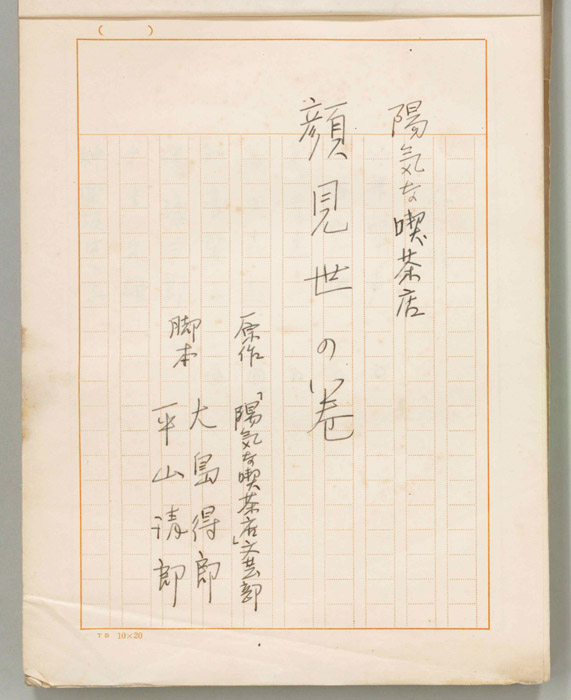 陽気な喫茶店
顔見世の巻
原作「陽気な喫茶店」文芸部
脚本 大島得郎
平山清郎
( )
TR 10×20